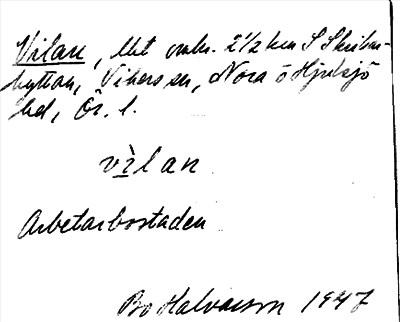 Vilan, lht omkr. 2½ km S Skrikar-
hyttan, Vikers sn, Nora o Hjulsjö
bd, Ör. l.
vìlan
Arbetarbostaden
Bo Halvarson 1947